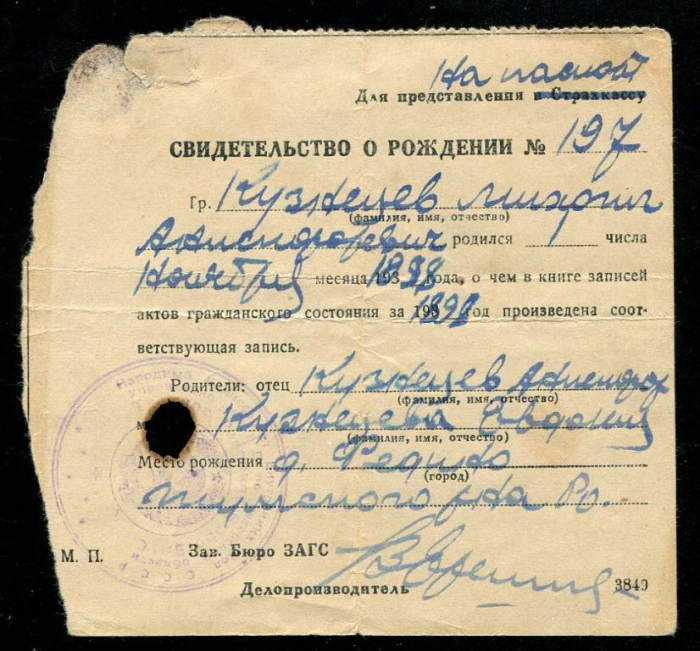 На паспорт
Для представления в Страхкассу
СВИДЕТЕЛЬСТВО О РОЖДЕНИИ № 197
Гр. Кузнецев Михаил
(фамилия, имя, отчество)
Анисифорович родился 1 числа
Ноября месяца 193 1898 года, о чем в книге записей
актов гражданского состояния за 193 1898 год произведена соот-
ветствующая запись.
Родители: отец Кузнецев Анисифор
(фамилия, имя, отчество)
м Кузнецева Евдокия
(фамилия, имя, отчество)
Место рождения д.
(город)
р-на
М. П. Зав. Бюро ЗАГС
Делопроизводитель 3849
Народный
С.С.С.Р.
области